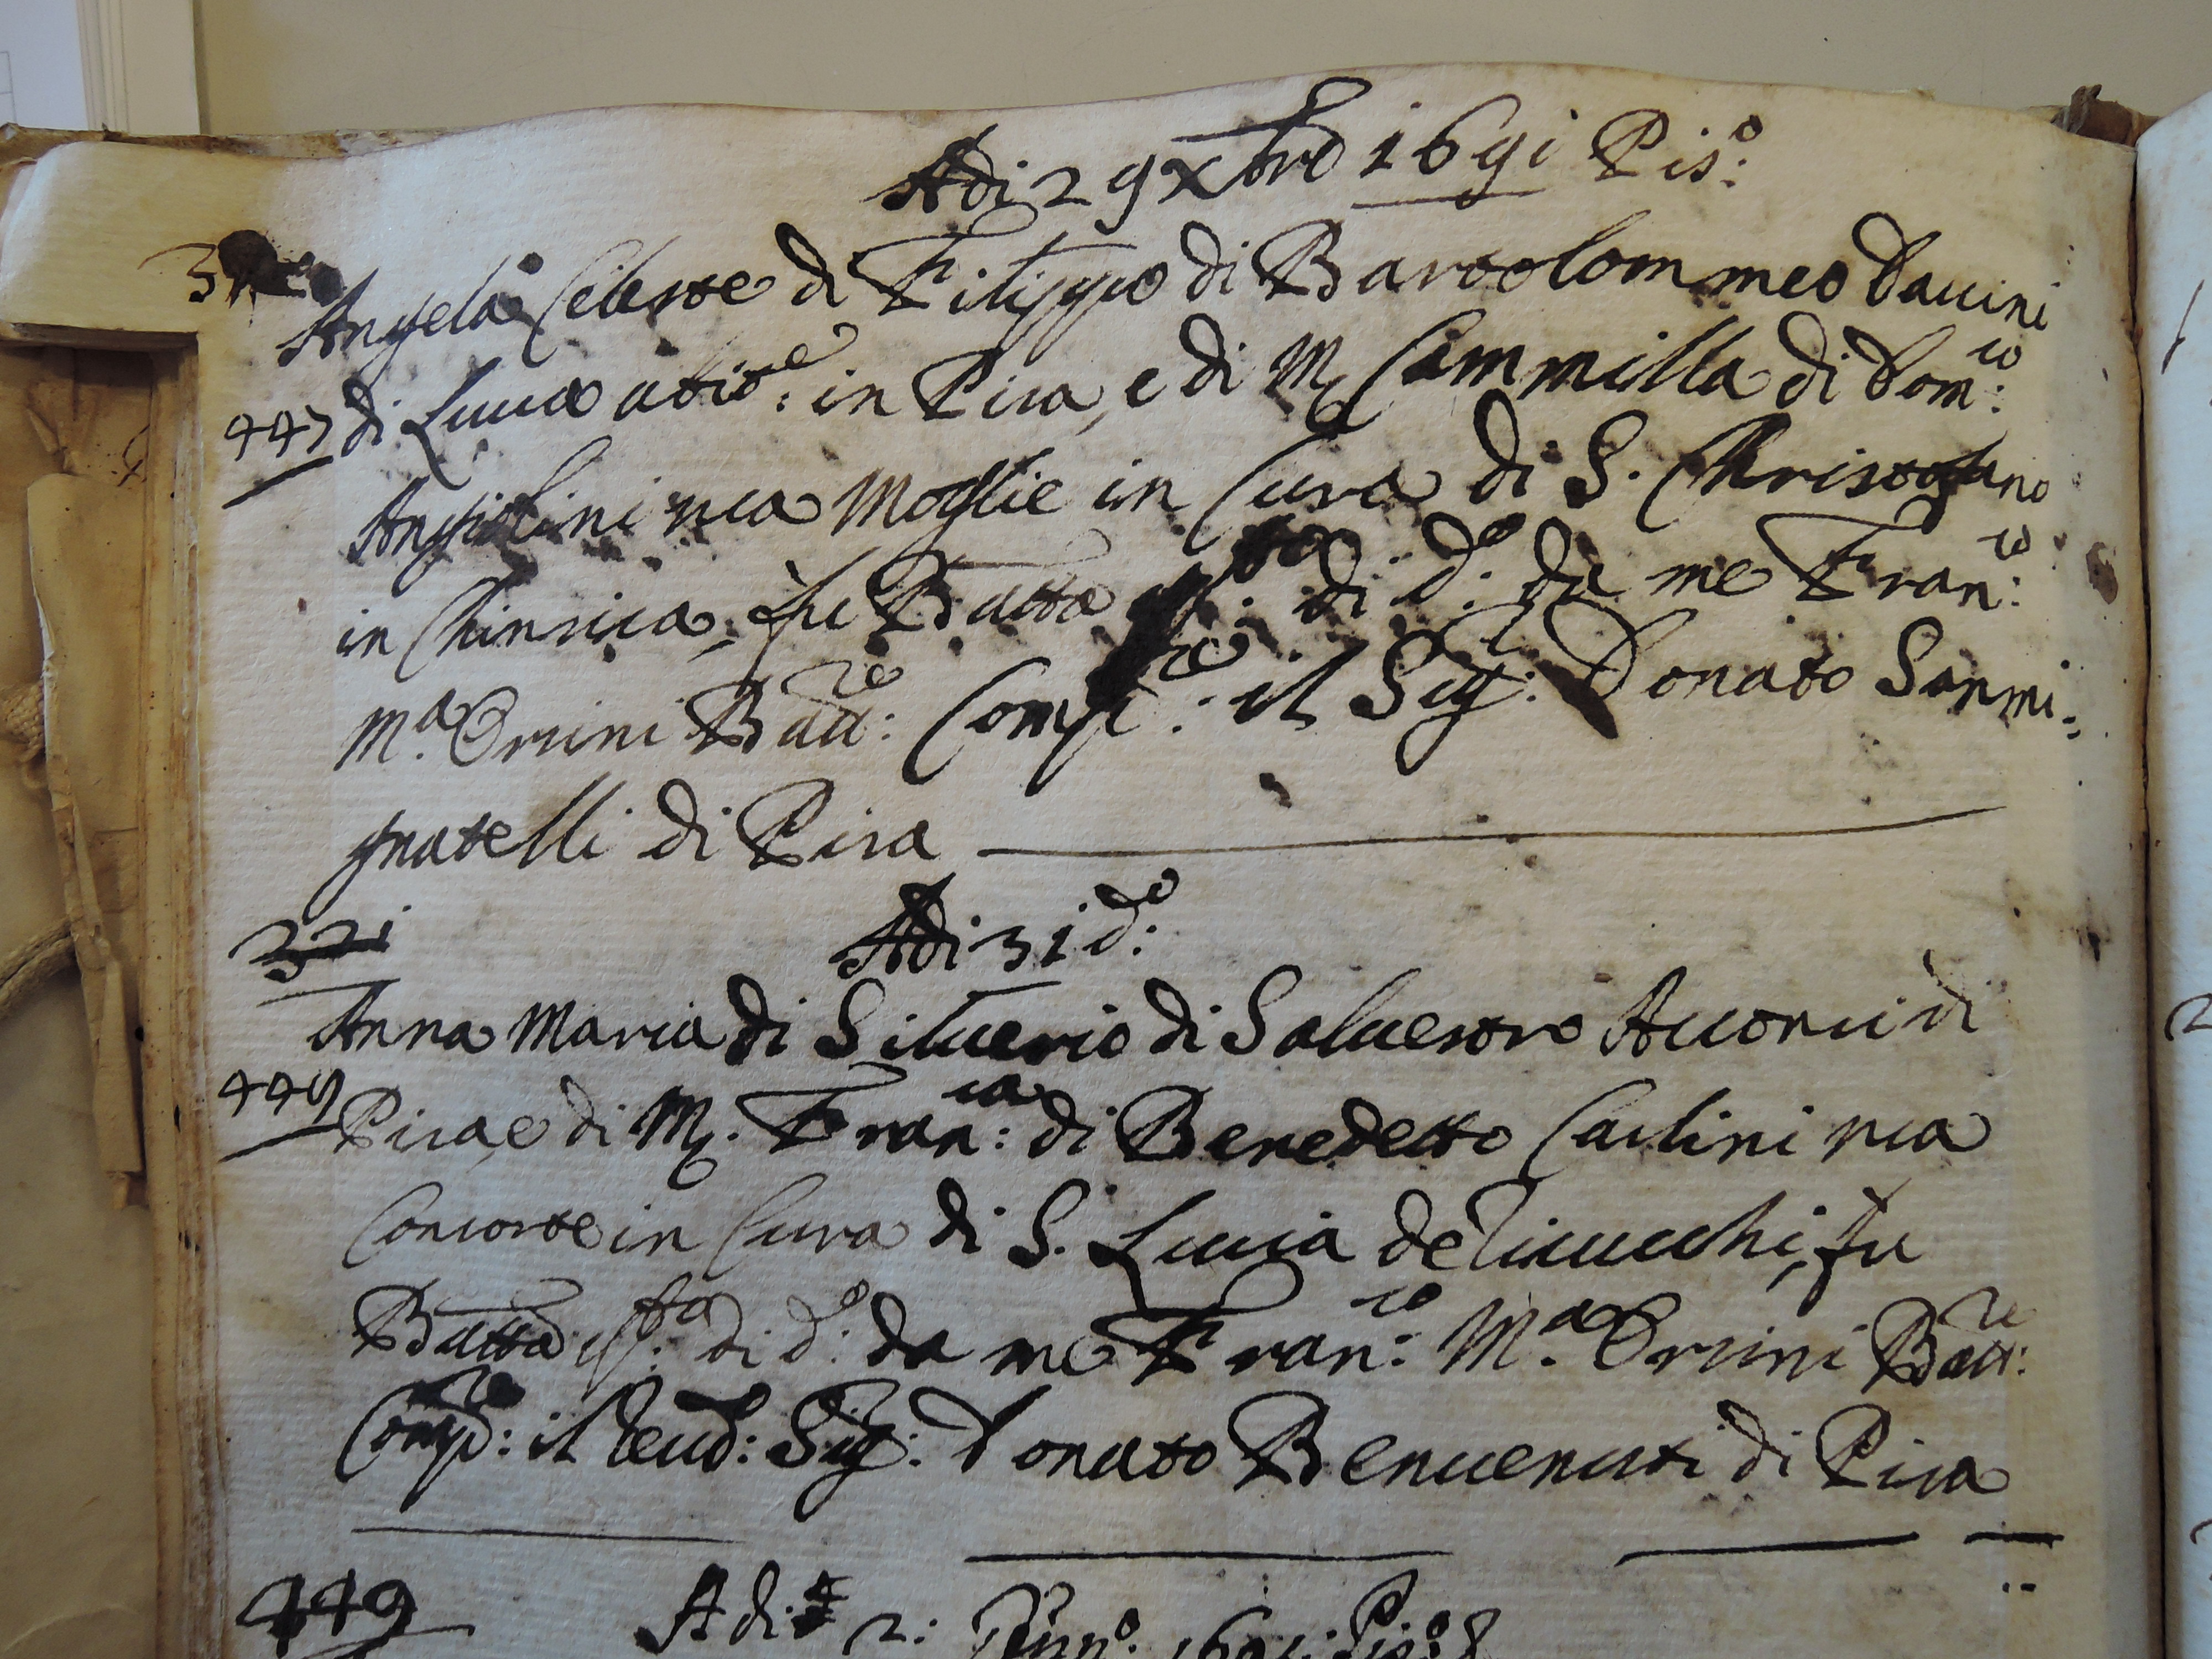 Adi 29 Xbre 1691 Pis.o
Angela Celeste di Filippo di Bartolommeo Daccini
447 di Lucca abit.e: in Pisa, e di M. Cammilla di Dom.co:
Angiolini sua Moglie in Cura di S. Christofano
in Chinsica, fu Batta di d.o: da me Fran.co:
M.a Orsini Batt.re: Comp.re: il Sig.: Donato Sanmi:
gnatelli di Pisa
321 Adi 31 d.o:
Anna Maria di Silverio di Salvestro Acconci di
448 Pisa, e di M. Fran.ca: di Benedetto Carlini sua
Consorte in Cura di S. Lucia de Ricucchi, fu
Batta di d.o: da me Fran.co: M.a Orsini Batt.re:
Comp.re: il Sig.: Donato Benvenuti di Pisa
449 Adi 2: Genn.o: 1691: Pis.o